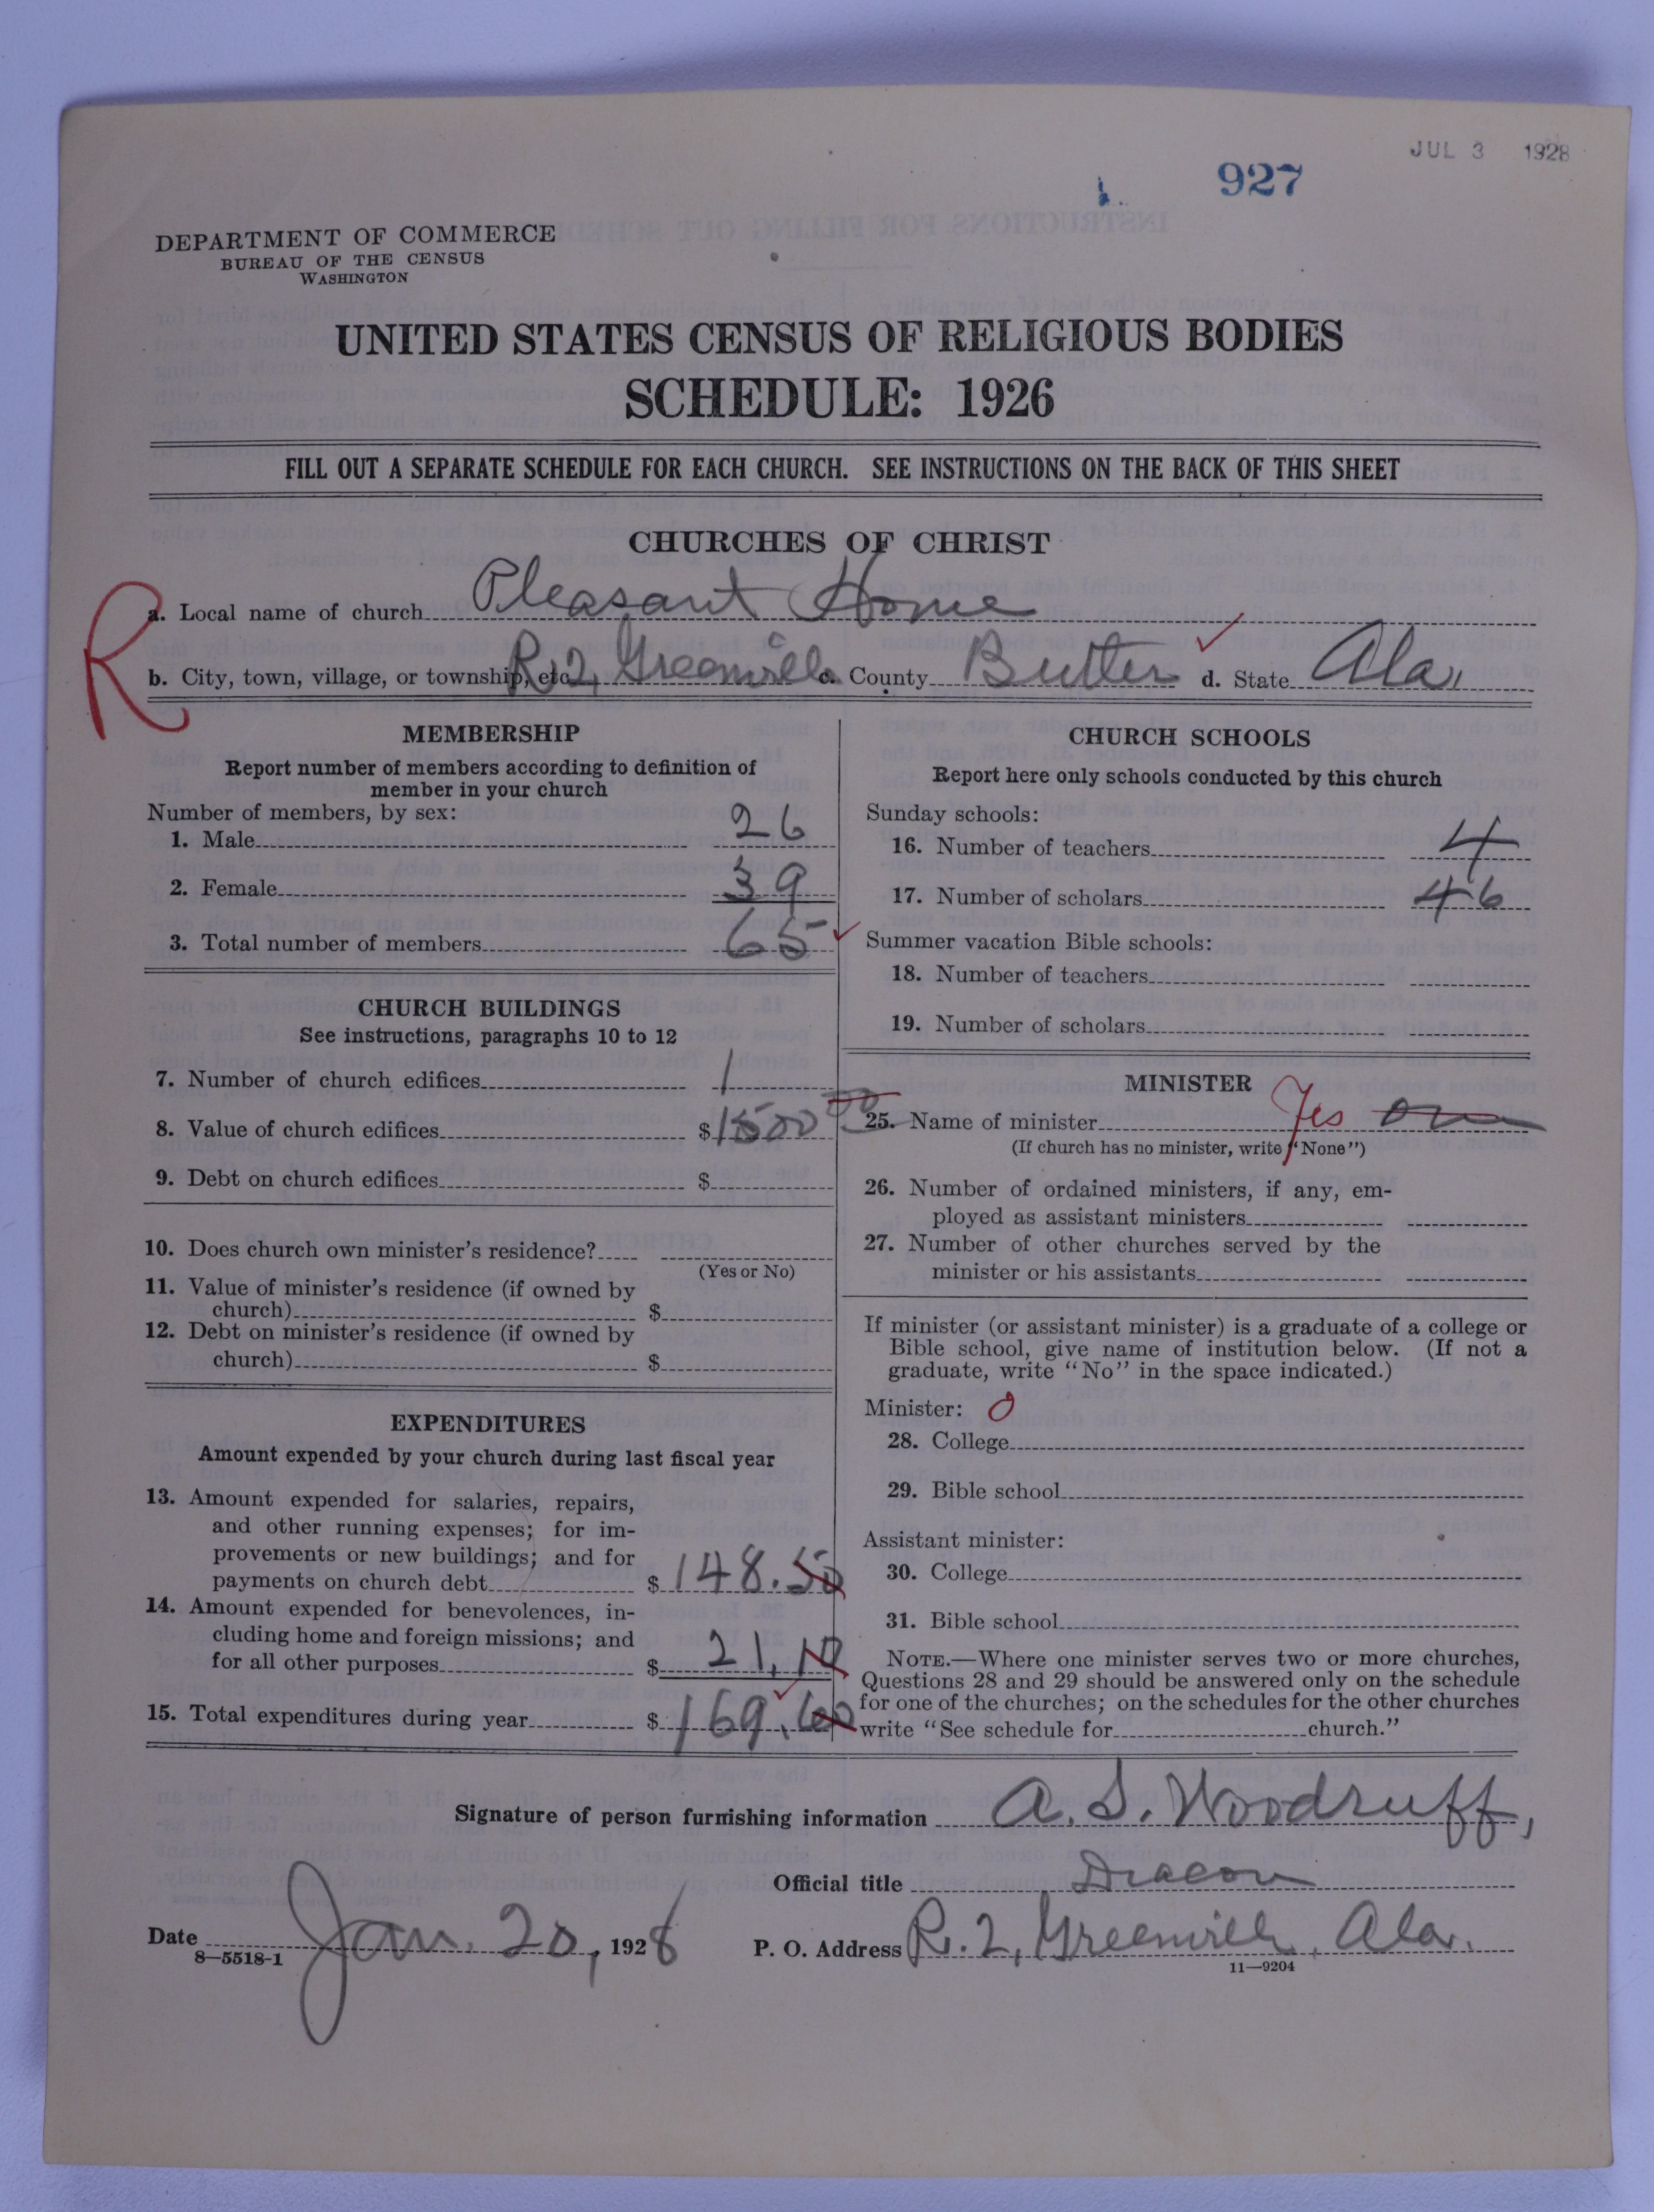 JUL 3 1928
927
DEPARTMENT OF COMMERCE
BUREAU OF THE CENSUS
WASHINGTON
UNITED STATES CENSUS OF RELIGIOUS BODIES
SCHEDULE: 1926
FILL OUT A SEPARATE SCHEDULE FOR EACH CHURCH. SEE INSTRUCTIONS ON THE BACK OF THIS SHEET
CHURCHES OF CHRIST
R
a. Local name of church Pleasant Home
b. City, town, village, or township, etc. R 2, Greenville c. County Butler d. State Ala.
MEMBERSHIP
Report number of members according to definition of
member in your church
Number of members, by sex:
1. Male 26
2. Female 39
3. Total number of members 65
CHURCH BUILDINGS
See instructions, paragraphs 10 to 12
7. Number of church edifices 1
8. Value of church edifices $1500 00
9. Debt on church edifices $
10. Does church own minister's residence?
(Yes or No)
11. Value of minister's residence (if owned by
church) $
12. Debt on minister's residence (if owned by
church) $
EXPENDITURES
Amount expended by your church during last fiscal year
13. Amount expended for salaries, repairs,
and other running expenses; for im-
provements or new buildings; and for
payments on church debt $148.50
14. Amount expended for benevolences, in-
cluding home and foreign missions; and
for all other purposes $21.10
15. Total expenditures during year $169.60
CHURCH SCHOOLS
Report here only schools conducted by this church
Sunday schools:
16. Number of teachers 4
17. Number of scholars 46
Summer vacation Bible schools:
18. Number of teachers
19. Number of scholars
MINISTER
25. Name of minister Yes
(If church has no minister, write "None")
26. Number of ordained ministers, if any, em-
ployed as assistant ministers
27. Number of other churches served by the
minister or his assistants
If minister (or assistant minister) is a graduate of a college or
Bible school, give name of institution below. (If not a
graduate, write "No" in the space indicated.)
Minister: 0
28. College
29. Bible school
Assistant minister:
30. College
31. Bible school
NOTE.—Where one minister serves two or more churches,
Questions 28 and 29 should be answered only on the schedule
for one of the churches; on the schedules for the other churches
write "See schedule for church."
Signature of person furnishing information A. S. Woodruff,
Official title Deacon
Date Jan. 20, 1928 P. O. Address R. 2, Greenville, Ala.
8—5518-1
11—9204